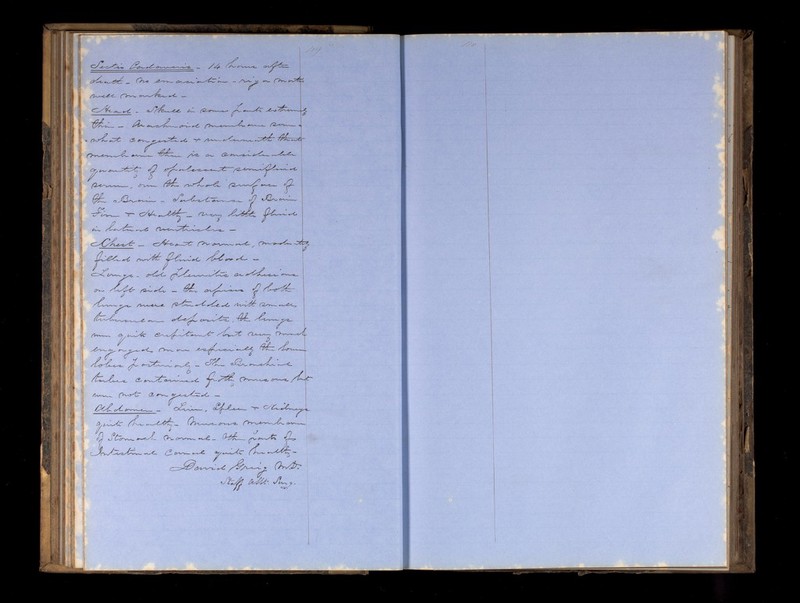 Sectio Cadaveris - 14 hours after
death - no emaciation - rigor mortis
well marked -
Head - Skull in some parts extremely
thin - Arachnoid membrane some-
what congested & underneath that
membrane there is a considerable
quantity of opalescent semifluid
serum, over the whole surface of
the Brain - Substance of Brain
Firm & Healthy - very little fluid
in lateral ventricles -
Chest - Heart normal, moderately
filled with fluid blood -
Lungs - old Pleuritic adhesions
on left side - the apices of both
lungs were studded with small
tubercular deposits the lungs
were quite crepitant but very much
engorged, more especially the lower
lobes posteriorly - The Bronchial
tubes contained frothy mucous but
were not congested -
Abdomen - Liver, Spleen & Kidneys
quite healthy - Mucous membrane
of Stomach normal - the parts of
Intestinal Canal quite healthy -
David Greig M.D.
Staff Asst. Surg.